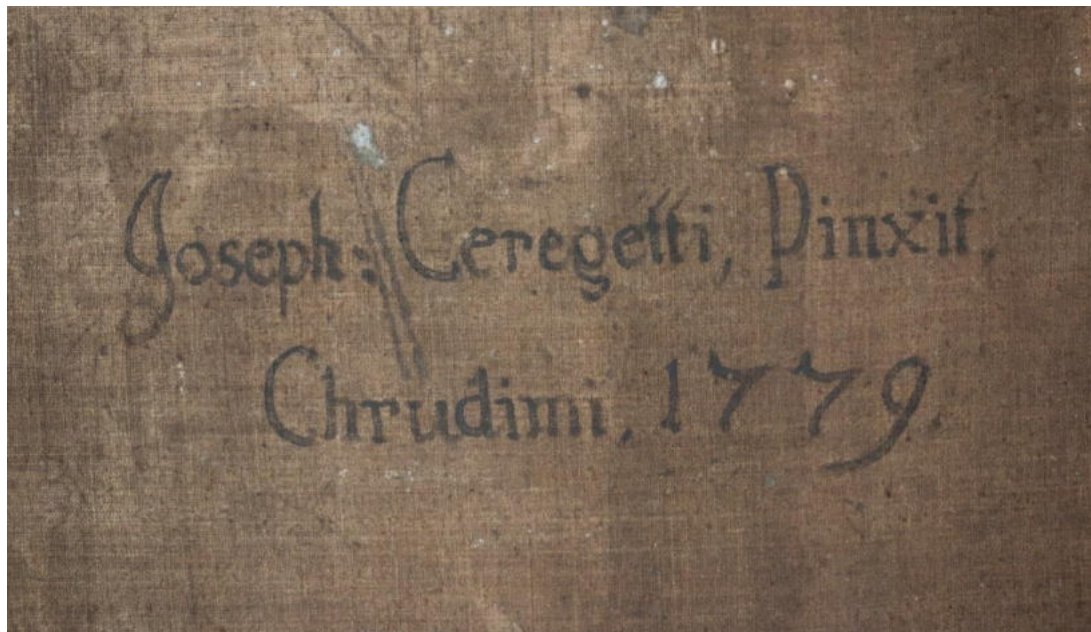 Joseph: Ceregetti, Pinxit,
Chrudimi, 1779.